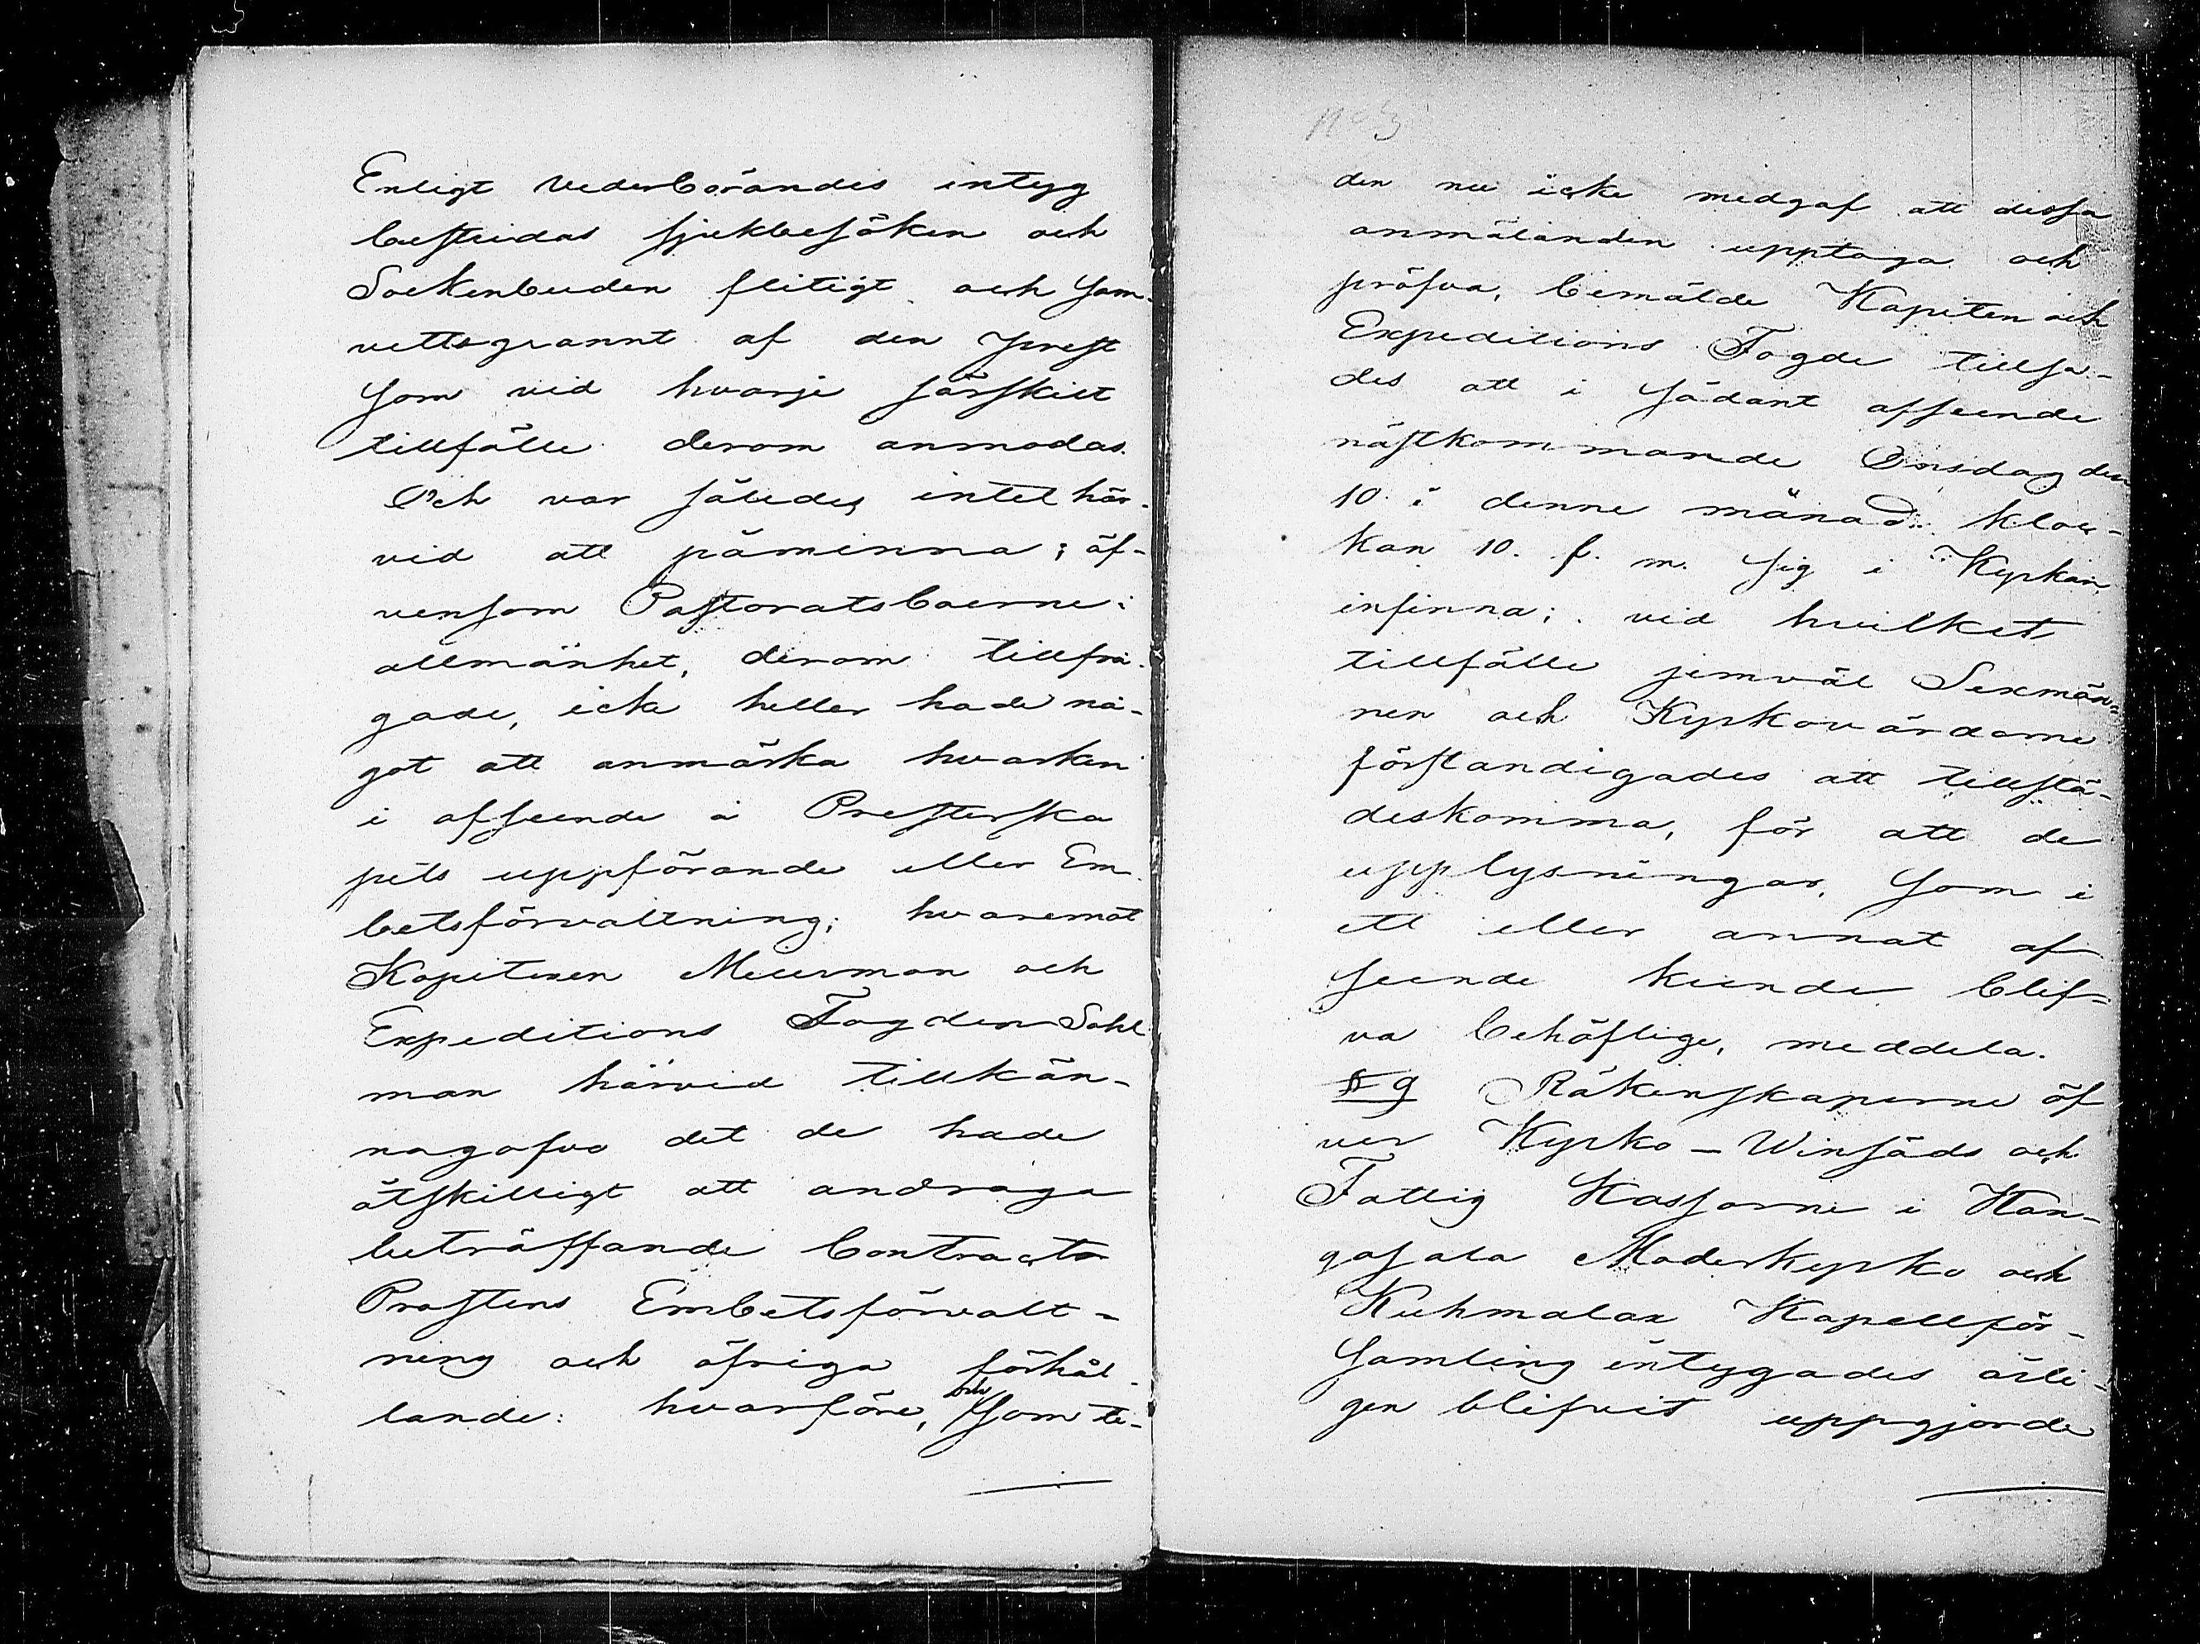 Enligt vederbörandes intyg
bestridas sjukbesöken och
Sockenbuden flitigt och sam-
vettsgrannt af den prest
som vid hvarje särskilt
tillfälle derom anmodas.
Och var således intet här-
vid att påminna; äf-
vensom Pastoratsboerne i
allmänhet, derom tillfrå-
gade, icke heller hade nå-
got att anmärka hvarken
i afseende å Presterska
pets uppförande eller Em-
betsförvaltning; hvaremot
Kapitenen Meurman och
Expeditions Fogden Sahl
man härvid tillkän-
nagofvo det de hade
åtskilligt att andraga
beträffande Contracts
Prostens Embetsförvalt-
ning och öfriga förhål-
lande: hvarföre, och som ti-
No 3
den nu icke medgaf att dessa
anmälanden upptaga och
pröfva, bemälde Kapiten och
Expeditions Fogde tillsa-
des att i sådant afseende
nästkommande Onsdag den
10 i denne månad kloc-
kan 10. f. m. sig i Kyrkan
infinna; vid hvilket
tillfälle jemväl Sexmän-
nen och Kyrkovärdarne
förstandigades att tillstä-
deskomma, för att de
upplysningar, som i
ett eller annat af
seende kunde blif-
va behöflige, meddela.
§ 9 Räkenskaperne öf
ver Kyrko - Winsäds och
Fattig Kassorne i Kan-
gasala Moderkyrko och
Kuhmalax Kapellför-
samling intygades årli-
gen blifvit uppgjorde